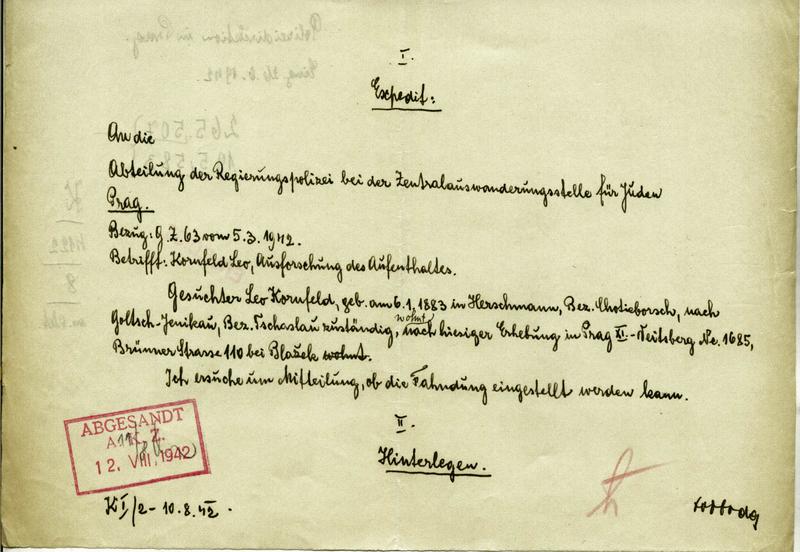 I.
Expedit:
An die
Abteilung der Regierungspolizei bei der Zentralauswanderungsstelle für Juden
Prag.
Bezug: G.Z. 63 vom 5.3.1942.
Betrifft: Kornfeld Leo, Ausforschung des Aufenthaltes.
Gesuchter Leo Kornfeld, geb. am 6.1.1883 in Herschmann, Bez. Chotieborsch, nach
Goltsch-Jenikau, Bez. Tschaslau zuständig, wohnt nach hiesiger Erhebung in Prag XI.-Veitsberg Nr. 1685,
Brünner Strasse 110 bei Blažek wohnt.
Ich ersuche um Mitteilung, ob die Fahndung eingestellt werden kann.
ABGESANDT
12. VIII. 1942
II.
Hinterlegen.
KI/2 - 10.8.42.